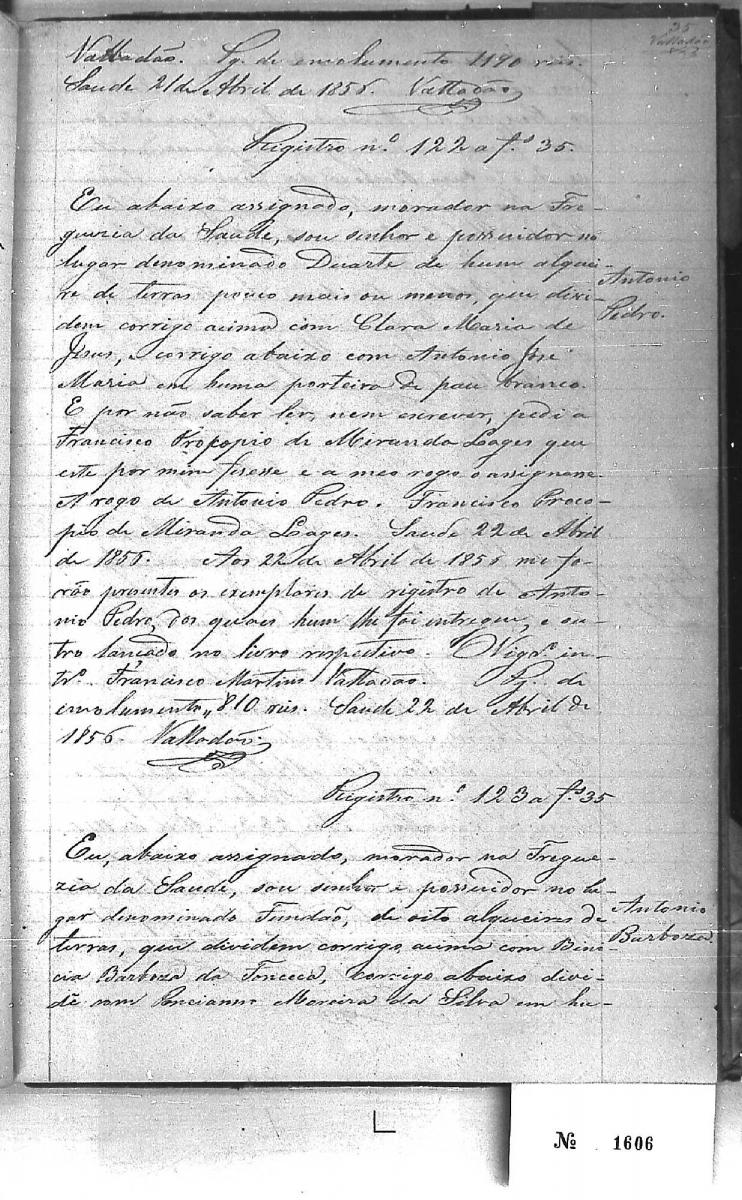 35
Valladão
Valladão. Pg. de emolumento 1190 reis.
Saude 21 de Abril de 1856. Valladão
Registro n.º 122 a f.s 35.
Eu abaixo assignado, morador na Fre-
guezia da Saude, sou senhor e possuidor no
lugar denominado Duarte de hum alquei-
re de terras pouco mais ou menos, que divi-
dem corrigo acima com Clara Maria de
Jesus, corrigo abaixo com Antonio José
Maria em huma porteira de pau branco.
E por não saber ler, nem escrever, pedi a
Francisco Propopio de Miranda Lages que
este por mim fisesse e a meo rogo o assignasse
A rogo de Antonio Pedro. Francisco Proco-
pio de Miranda Lages. Saude 22 de Abril
de 1856. Aos 22 de Abril de 1856 me fo-
rão presentes os exemplares de registro de Anto-
nio Pedro, dos quaes hum lhe foi entregue, e ou-
tro lançado no livro respectivo. O Vigr.º in-
tr.º Francisco Martins Valladão. Pg. de
emolumento,, 810 reis. Saude 22 de Abril de
1856. Valladão.
Antonio
Pedro.
Registro n.º 123 a f.s 35
Eu, abaixo assignado, morador na Fregue-
zia da Saude, sou senhor e possuidor no lu-
gar denominado Fundão, de oito alqueires de
terras, que dividem corrigo acima com Bene-
cia Barboza da Fonceca, corrigo abaixo divi-
dē com Poncianno Moreira da Silva em hu-
Antonio
Barboza.
Nº 1606